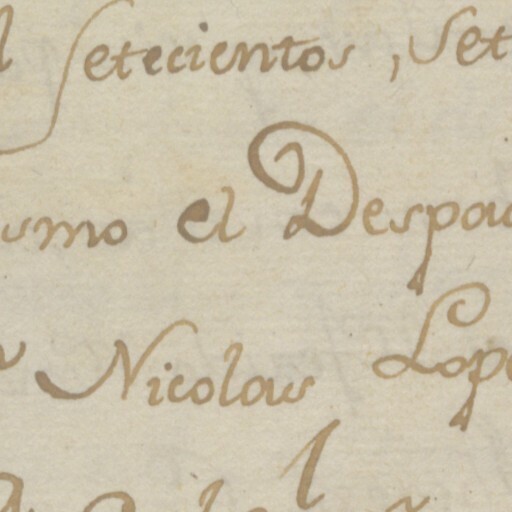 l setecientos, Set
smo el Despac
Nicolas Lope